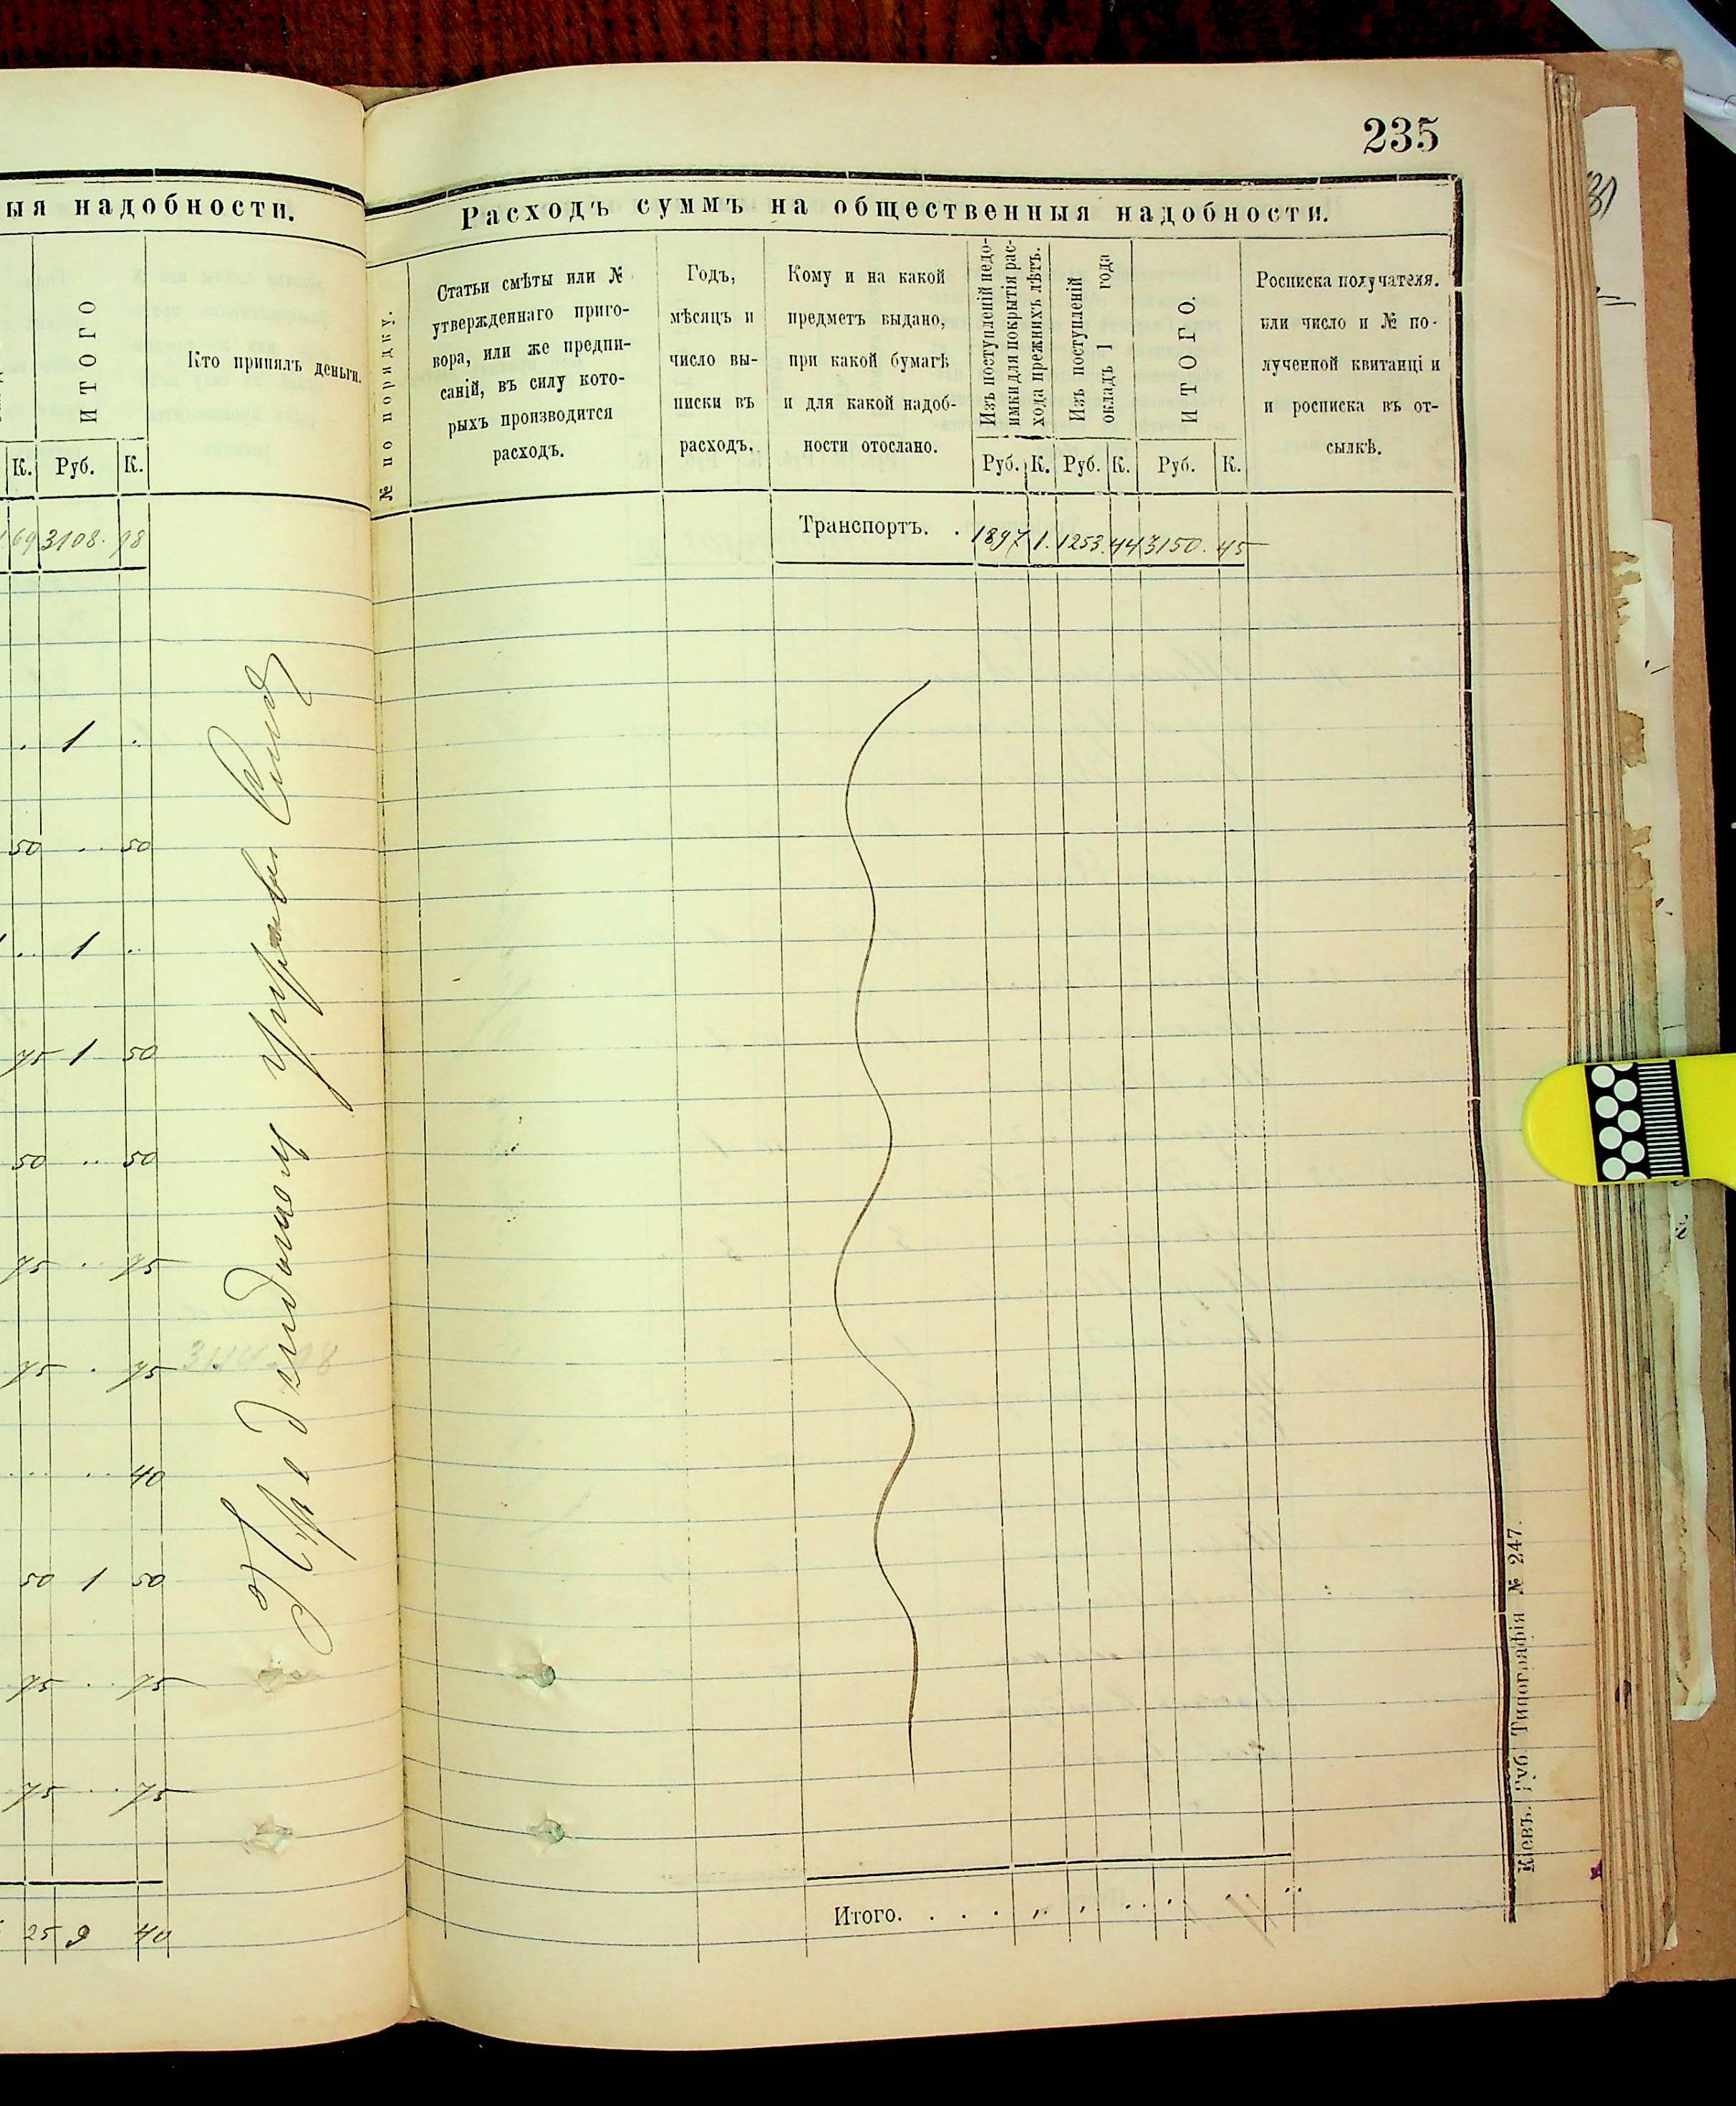 235
ыя надобности.
ИТОГО
Кто принялъ деньги.
К. Руб. К.
69 3108. 18
. 1 .
50 .. 50
.. 1 ..
75 1 50
50 .. 50
75 .. 75
75 . 75
... .. 40
50 1 50
75 .. 75
75 .. 75
25 9 40
управы
Расходъ суммъ на общественныя надобности.
№ по порядку.
Статьи смѣты или №
утвержденнаго приго-
вора, или же предпи-
саній, въ силу кото-
рыхъ производится
расходъ.
Годъ,
мѣсяцъ и
число вы-
писки въ
расходъ.
Кому и на какой
предметъ выдано,
при какой бумагѣ
и для какой надоб-
ности отослано.
Изъ поступленій недо-
имки для покрытія рас-
хода прежнихъ лѣтъ.
Изъ поступленій
окладъ 1 года
ИТОГО.
Росписка получателя.
или число и № по-
лученной квитанціи
и росписка въ от-
сылкѣ.
Руб. К. Руб. К. Руб. К.
Транспортъ. . 1897 1. 1253. 44 3150. 45
Итого. . . .
Кіевъ. Губ. Типографія № 247.